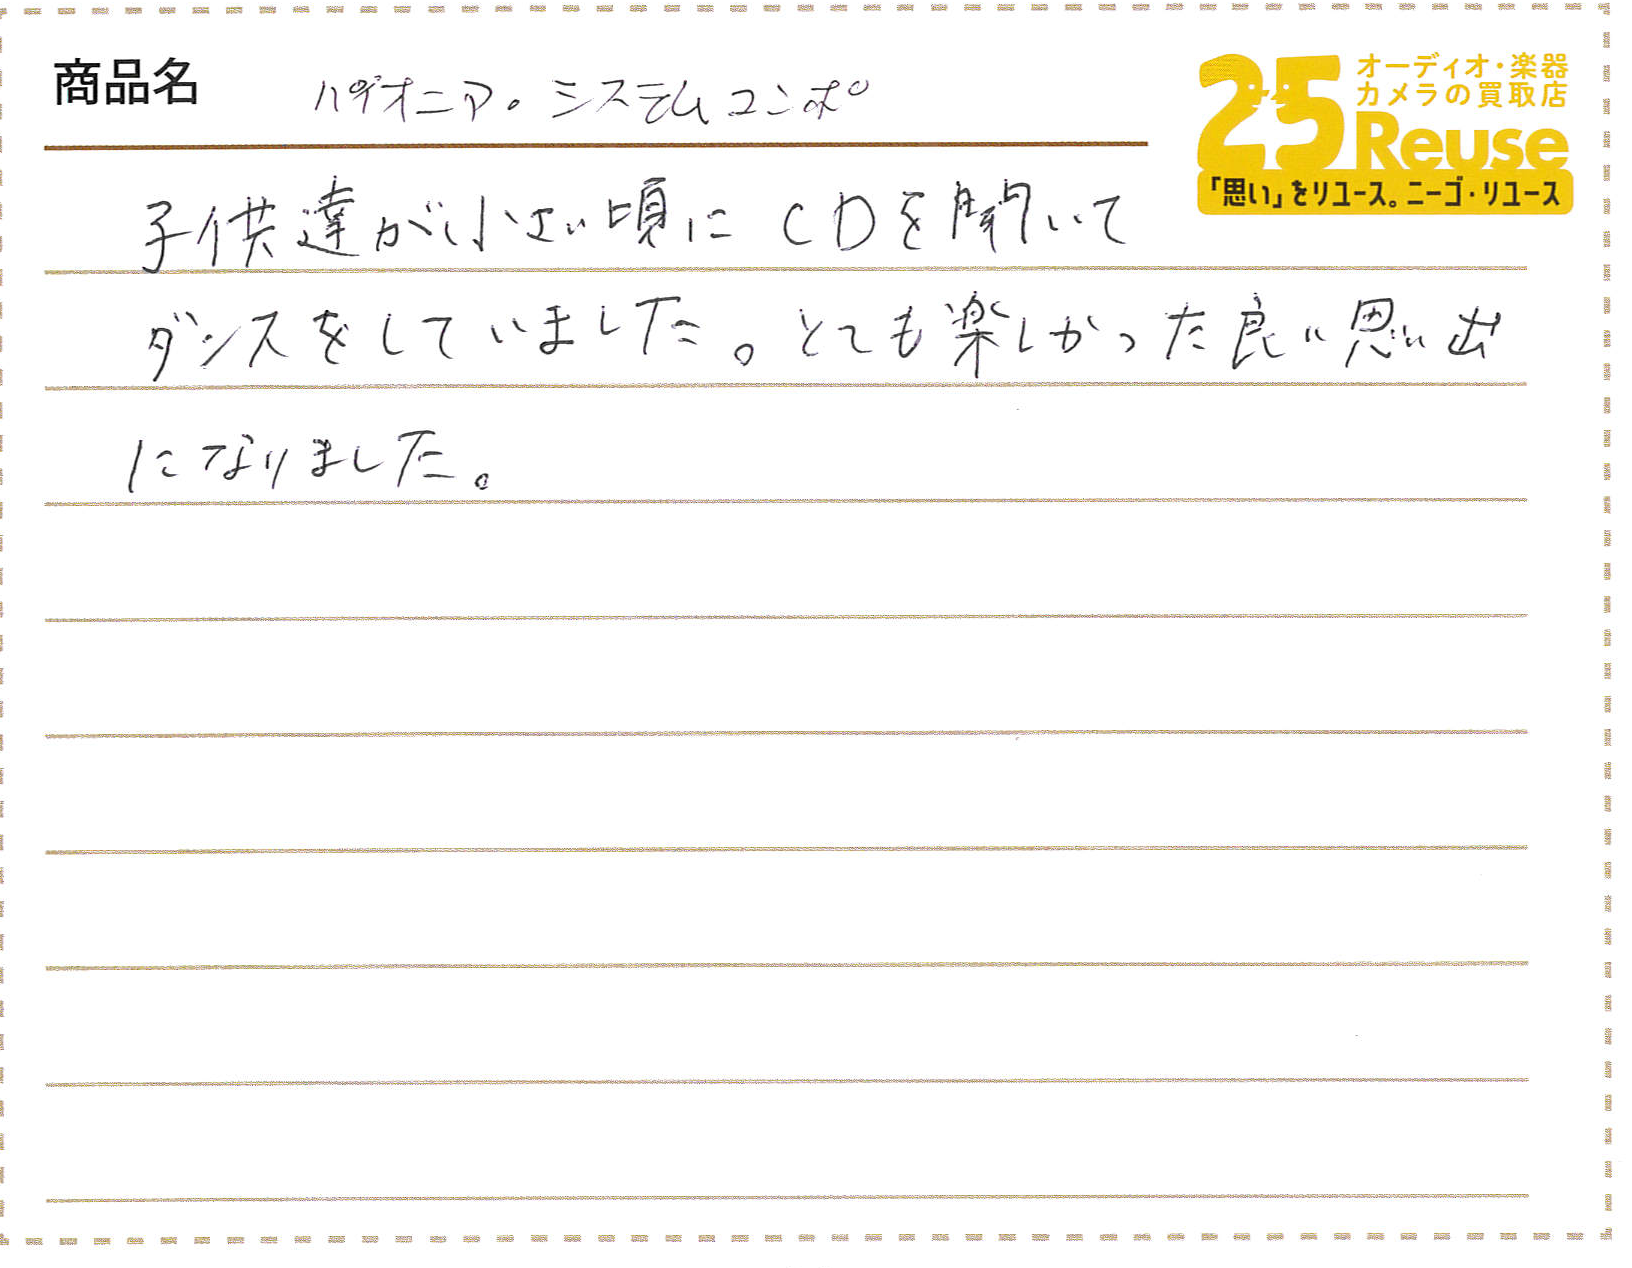 商品名 パイオニア。システムコンポ
25 オーディオ・楽器
カメラの買取店
Reuse
「思い」をリユース。ニーゴ・リユース
子供達が小さい頃に CDを聞いて
ダンスをしていました。とても楽しかった良い思い出
になりました。